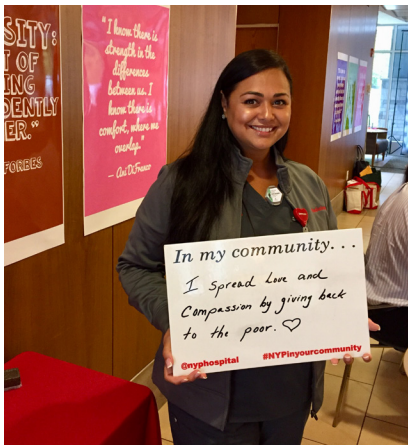 SITY:
T OF
ING
DENTLY
ER."
FORBES
"I know there is
strength in the
differences
between us. I
know there is
comfort, where we
overlap."
— Ani DiFranco
In my community...
I spread Love and
Compassion by giving back
to the poor. ♡
@nyphospital
#NYPinyourcommunity